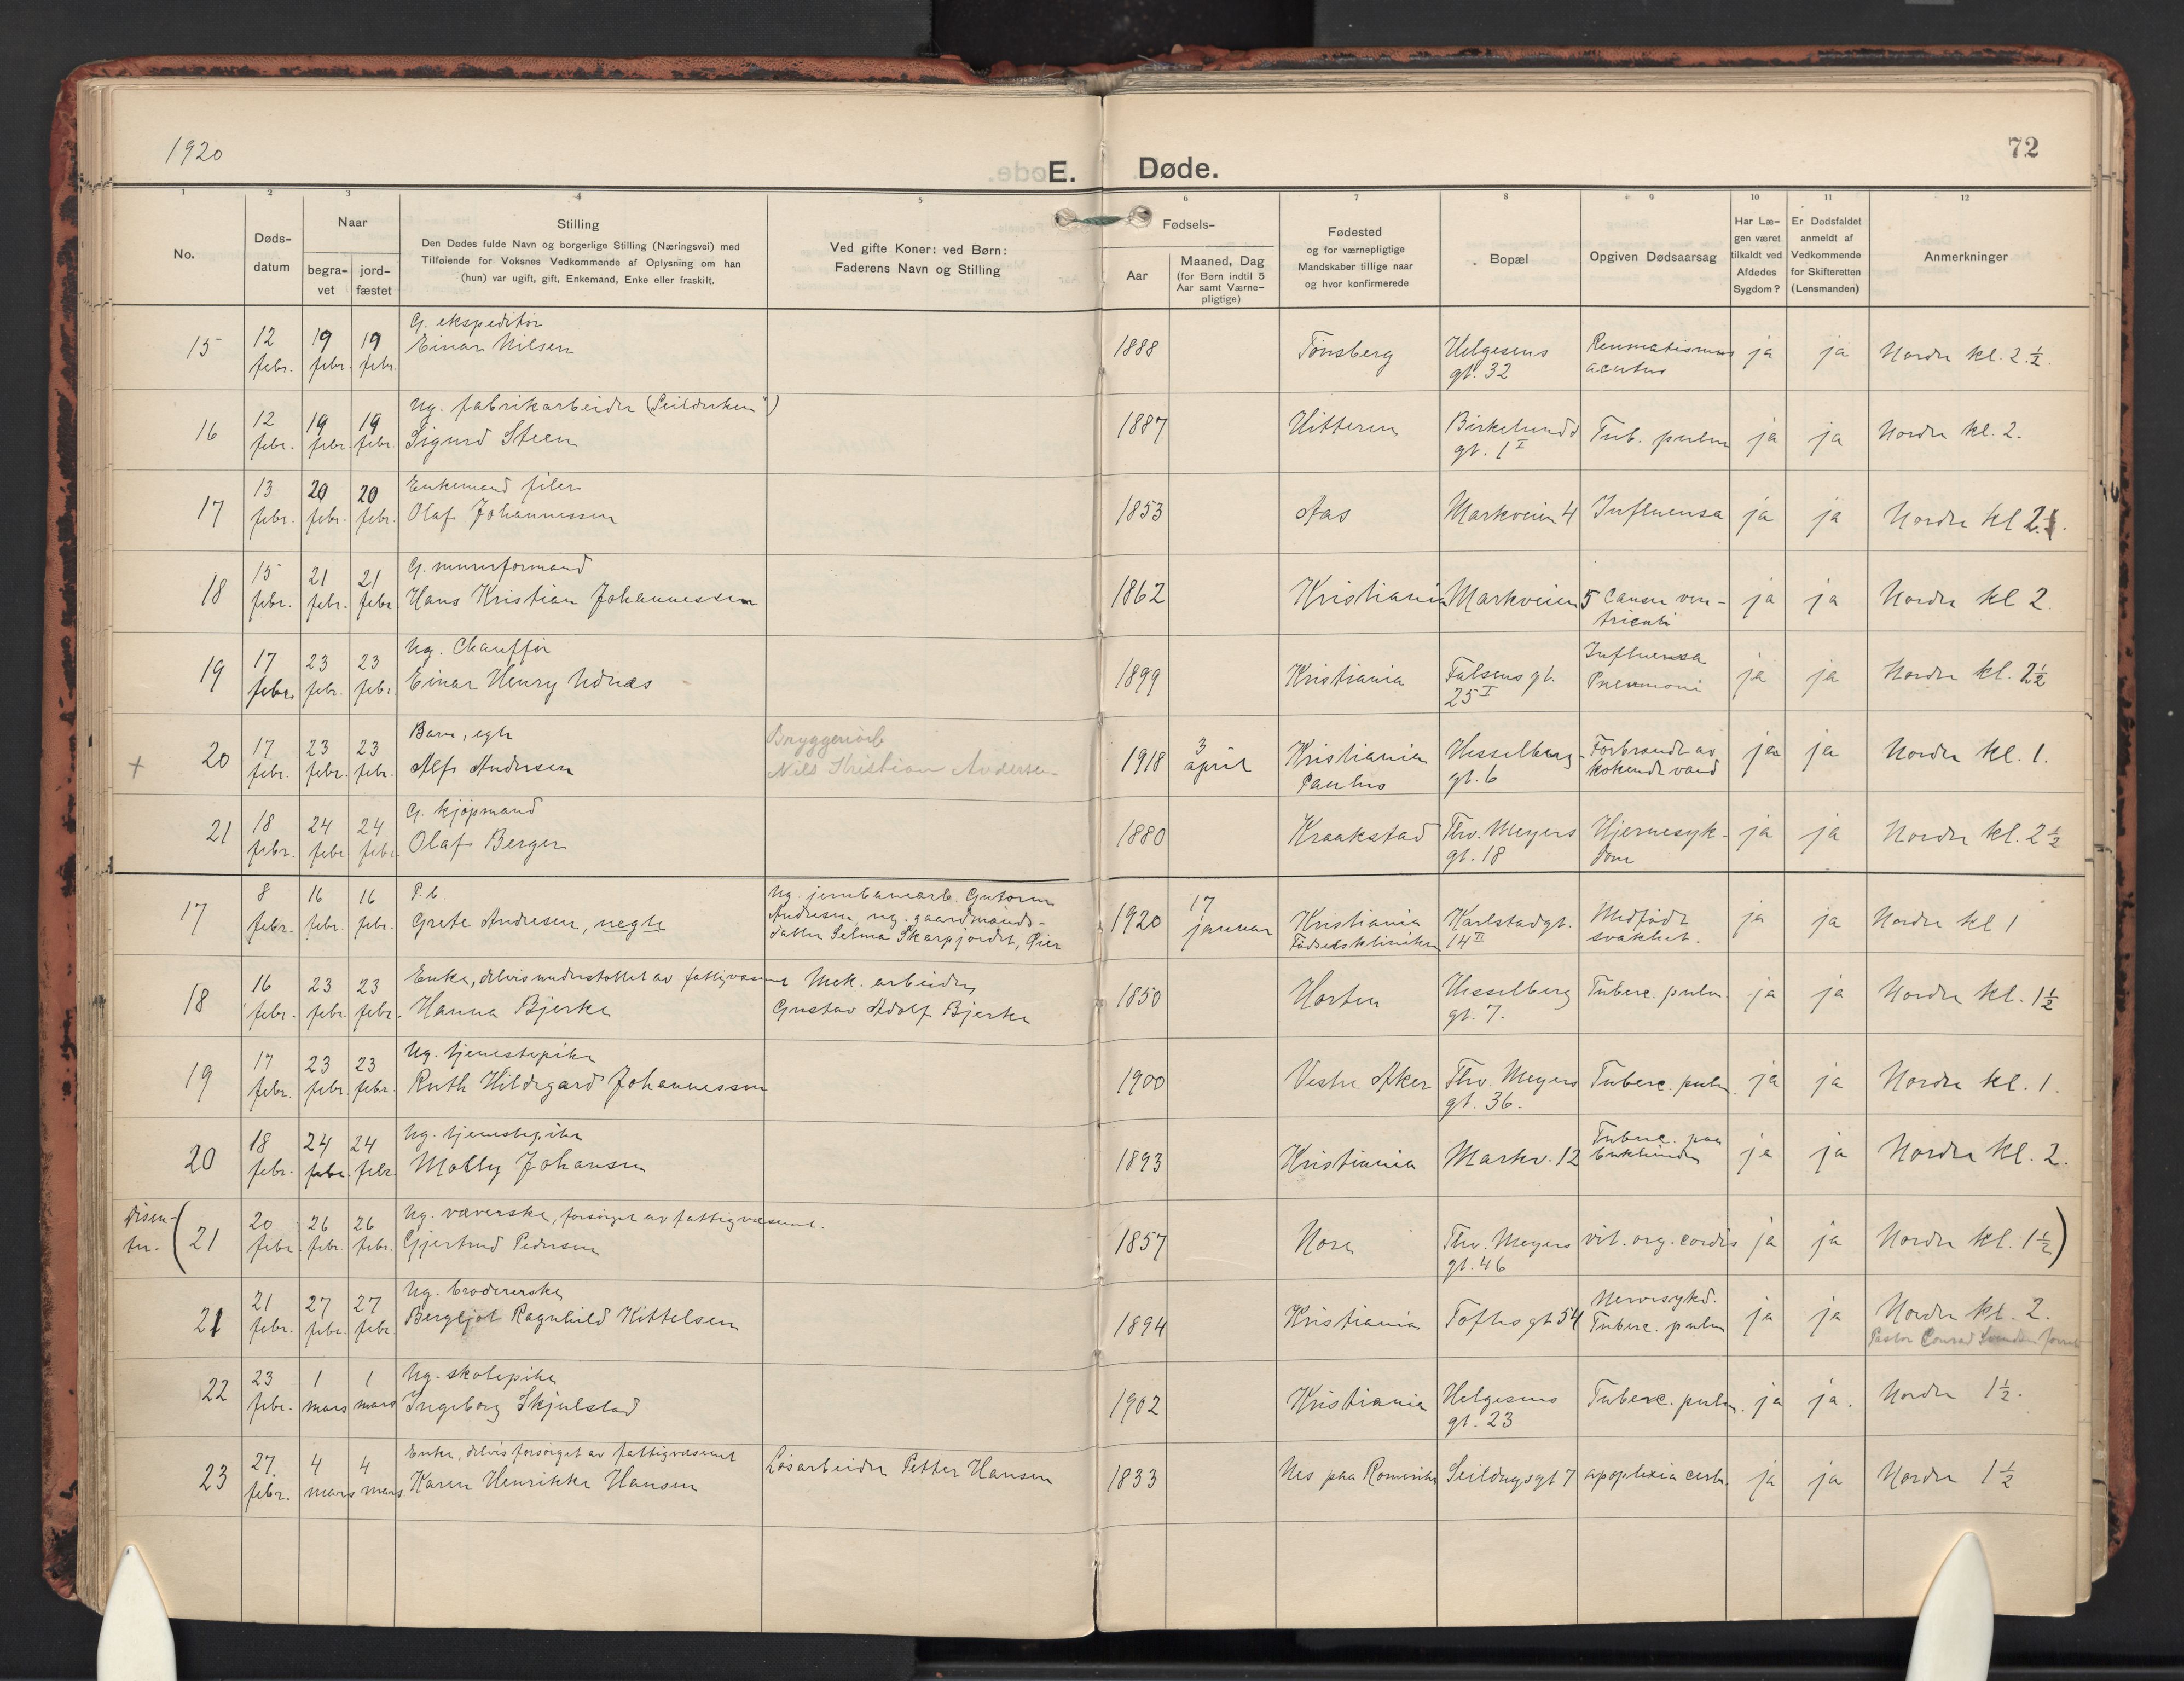 1920
72
E. Døde.
1 2 3 4 5 6 7 8 9 10 11 12
No.
Døds-
datum
Naar
begra-
vet
jord-
fæstet
Stilling
Den Dødes fulde Navn og borgerlige Stilling (Næringsvei) med
Tilføiende for Voksnes Vedkommende af Oplysning om han
(hun) var ugift, gift, Enkemand, Enke eller fraskilt.
Ved gifte Koner: ved Børn:
Faderens Navn og Stilling
Fødsels-
Aar
Maaned, Dag
(for Børn indtil 5
Aar samt Værne-
pligtige)
Fødested
og for værnepligtige
Mandskaber tillige naar
og hvor konfirmerede
Bopæl
Opgiven Dødsaarsag
Har Læ-
gen været
tilkaldt ved
Afdødes
Sygdom?
Er Dødsfaldet
anmeldt af
Vedkommende
for Skifteretten
(Lensmanden)
Anmerkninger
15 12 febr. 19 febr. 19 febr.
G. ekspeditør
Einar Nilsen
1888 Tønsberg
Helgesens
gt. 32
Reumatismus
acutus
ja ja Nordre kl. 2 ½.
16 12 febr. 19 febr. 19 febr.
Ug. fabrikarbeider
Sigurd Steen
1887 Hitteren
Birkelunds
gt. 1 I
Tub. pulm ja ja Nordre kl. 2.
17 13 febr. 20 febr. 20 febr.
Enkemand filer
Olaf Johannessen
1853 Aas Markveien 4 Influensa ja ja Nordre kl 2
18 15 febr. 21 febr. 21 febr
G. murerformand
Hans Kristian Johannessen
1862 Kristiania Markveien 5
Cancer ven-
triculi
ja ja Nordre kl 2.
19 17 febr. 23 febr. 23 febr.
Ug. Chauffør
Einar Henry Udnæs
1899 Kristiania
Falsens gt.
25 I
Influensa
Pneumoni
ja ja Nordre kl. 2½
+ 20 17 febr. 23 febr. 23 febr.
Barn, egte
Alf Andersen
Bryggeriarb
Nils Kristian Andersen
1918 3 april
Kristiania
Paulus
Hesselberg
gt. 6
Forbrændt av
kokende vand
ja ja Nordre kl. 1.
21 18 febr. 24 febr 24 febr.
G. kjøpmand
Olaf Berger
1880 Kraakstad
Thv. Meyers
gt. 18
Hjernesyk-
dom
ja ja Nordre kl. 2½
17 8 febr. 16 febr. 16 febr.
P.b.
Grete Andresen, uegte
Ug. jernbanearb. Gutorm
Andresen, ug. gaardmands-
datter Selma Skarpjordet, Øier
1920 17 januar
Kristiania
Fødselskliniken
Karlstadgt.
14 II
Medfødt
svakhet.
ja ja Nordre kl 1
18 16 febr. 23 febr. 23 febr.
Enke, delvis understøttet av fattigvæsenet
Hanna Bjerke
Mek. arbeider
Gustav Adolf Bjerke
1850 Horten
Hesselberg
gt. 7.
Tuberc. pulm. ja ja Nordre kl. 1½
19 17 febr. 23 febr 23 febr.
Ug. tjenestepike
Ruth Hildegard Johannessen
1900 Vestre Aker
Thv. Meyers
gt. 36.
Tuberc. pulm. ja ja Nordre kl. 1.
20 18 febr. 24 febr. 24 febr.
Ug. tjenestepike
Molly Johansen
1893 Kristiania Markv. 12
Tuberc. paa
bukhinden
ja ja Nordre kl. 2.
Disen-
ter. (21 20 febr. 26 febr. 26 febr.
Ug. væverske, forsørget av fattigvæsenet.
Gjertrud Pedersen
1857 Nore
Thv. Meyers
gt. 46
vit. org. cordis ja ja Nordre kl. 1½)
21 21 febr. 27 febr. 27 febr.
Ug. brodererske
Bergljot Ragnhild Kittelsen
1894 Kristiania Toftesgt 54
Nervesykd.
Tuberc. pulm
ja ja Nordre kl. 2.
Pastor Conrad Svendsen forrett
22 23 febr. 1 mars 1 mars
Ug. skolepike
Ingeborg Skjulstad
1902 Kristiania
Helgesens
gt. 23
Tuberc. pulm. ja ja. Nordre 1½.
23 27. febr. 4 mars 4 mars
Enke, delvis forsørget av fattigvæsenet
Karen Henrikke Hansen
Løsarbeider Petter Hansen
1833 Nes paa Romerike Seildugsgt 7 apoplexia cerbr. ja ja Nordre 1½